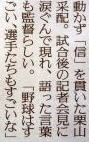 動かず「信」を貫いた栗山
采配。試合後の記者会見に
涙ぐんで現れ、語った言葉
も監督らしい。「野球はす
ごい、選手たちもすごいな」